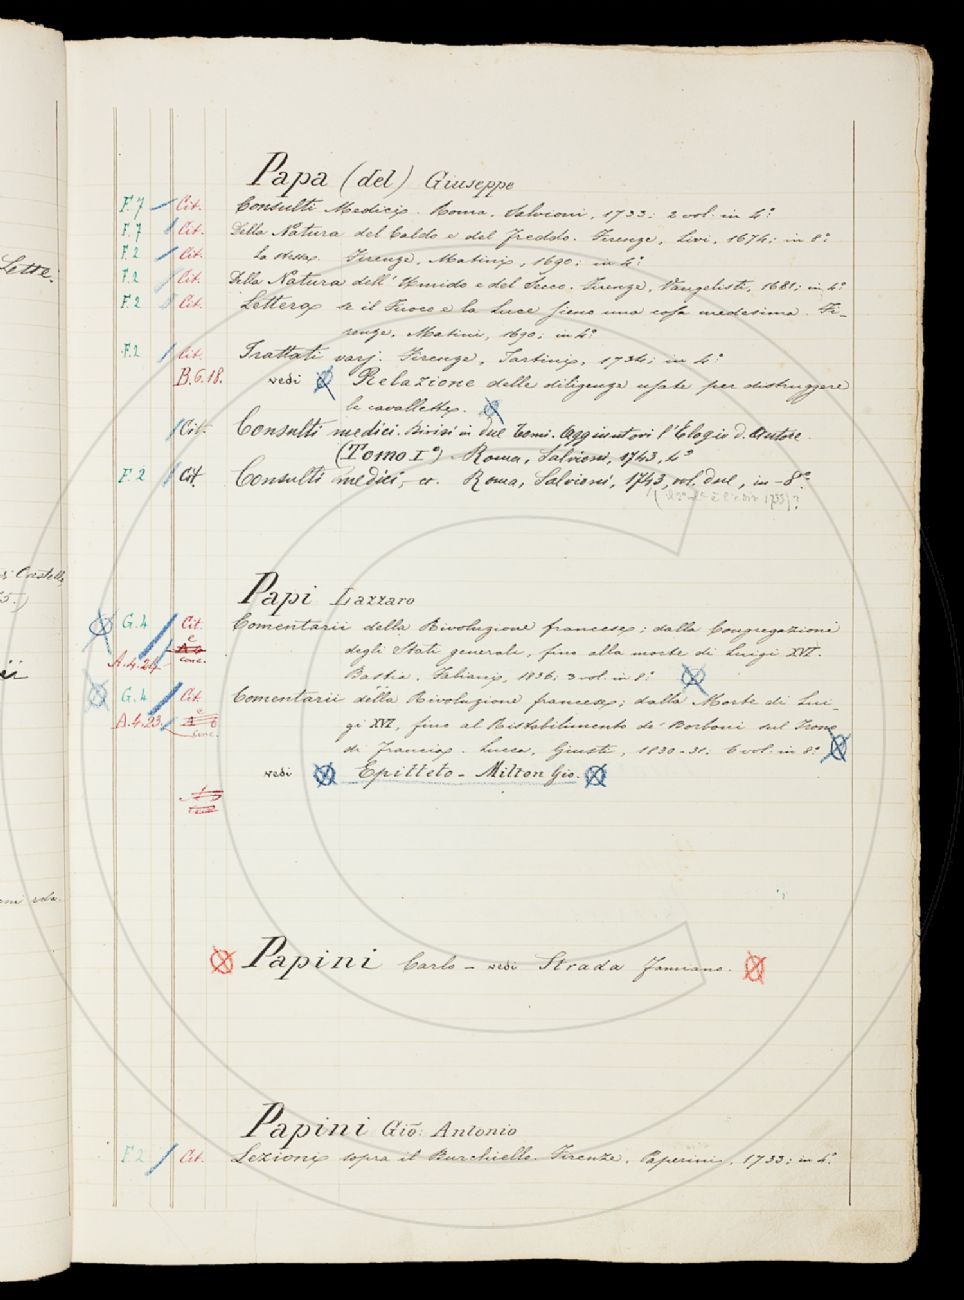 Papa (del) Giuseppe
F. 7 Cit. Consulti Medici. Roma, Salvioni, 1733; 2 vol. in 4.°
F. 7 Cit. Della Natura del Caldo e del Freddo. Firenze, Livi, 1674; in 8.°
F. 2 Cit. La stessa. Firenze, Matini, 1690; in 4.°
F. 2 Cit. Della Natura dell' Umido e del Secco. Firenze, Vangelisti, 1681; in 4.°
F. 2 Cit. Lettera se il Fuoco e la Luce sieno una cosa medesima. Fi-
renze, Matini, 1690; in 4.°
F. 2 Cit. Trattati varj. Firenze, Tartini, 1734; in 4.°
B. 6. 18. vedi Relazione delle diligenze usate per distruggere
le cavallette.
Cit. Consulti medici. Divisi in due Tomi. Aggiuntovi l'Elogio d. Autore.
(Tomo I°). Roma, Salvioni, 1743, 4.°
F. 2 Cit. Consulti medici, ec. Roma, Salvioni, 1743, vol. due, in-8.°
Papi Lazzaro
G. 4 Cit. Comentarii della Rivoluzione francese; dalla Congregazione
degli Stati generali, fino alla morte di Luigi XVI.
A. 4. 24. Bastia, Fabiani, 1836; 3 vol. in 8.°
G. 4 Cit. Comentarii della Rivoluzione francese; dalla Morte di Lui-
A. 4. 23. gi XVI, fino al Ristabilimento de' Borboni sul Trono
di Francia. Lucca, Giusti, 1830-31. 6 vol. in 8.°
vedi Epitteto - Milton Gio.
Papini Carlo - vedi Strada Famiano.
Papini Gio: Antonio
F. 2 Cit. Lezioni sopra il Burchiello. Firenze, Paperini, 1733; in 4.°